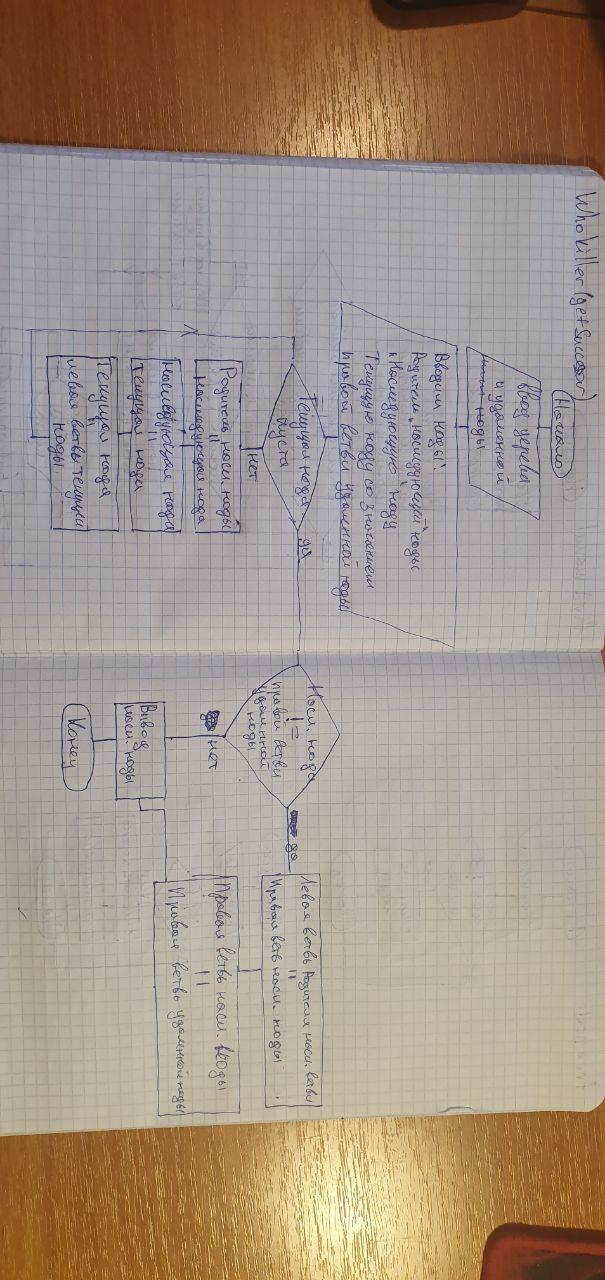 Who killer (get Successor)
Начало
Ввод дерева
и удаленной
ноды
Вводим ноды:
Родитель „наследующей“ ноды
„Наследующую“ ноду
Текущую ноду со значением
правой ветви удаленной ноды
Текущая нода
пуста
да
нет
Родитель насл. ноды
=
наследующая нода
Наследующая нода
=
текущая нода
Текущая нода
=
левая ветвь текущей
ноды
Насл. нода
!=
правой ветви
удаленной
ноды
да
нет
Левая ветвь Родителя насл. ветви
=
Правая ветвь насл. ноды
Правая ветвь насл. ноды
=
Правая ветвь удаленной ноды
Вывод
насл. ноды
Конец